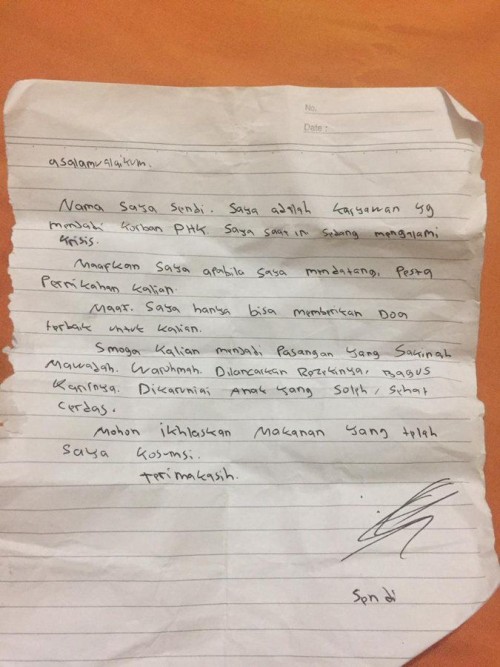 No.
Date :
asalamualaikum.
Nama saya Sendi. Saya adalah karyawan yg
menjadi korban PHK saya saat ini sedang mengalami
krisis.
Maapkan saya apabila saya mendatangi Pesta
Pernikahan kalian.
Maap. Saya hanya bisa memberikan Doa
terbaik untuk kalian.
Smoga kalian menjadi Pasangan yang Sakinah
Mawadah. Warohmah. Dilancarkan Rezekinya, Bagus
Karirnya. Dikaruniai Anak yang Soleh, Sehat
Cerdas.
Mohon ikhlaskan Makanan yang telah
saya kosumsi.
Terimakasih.
Sendi